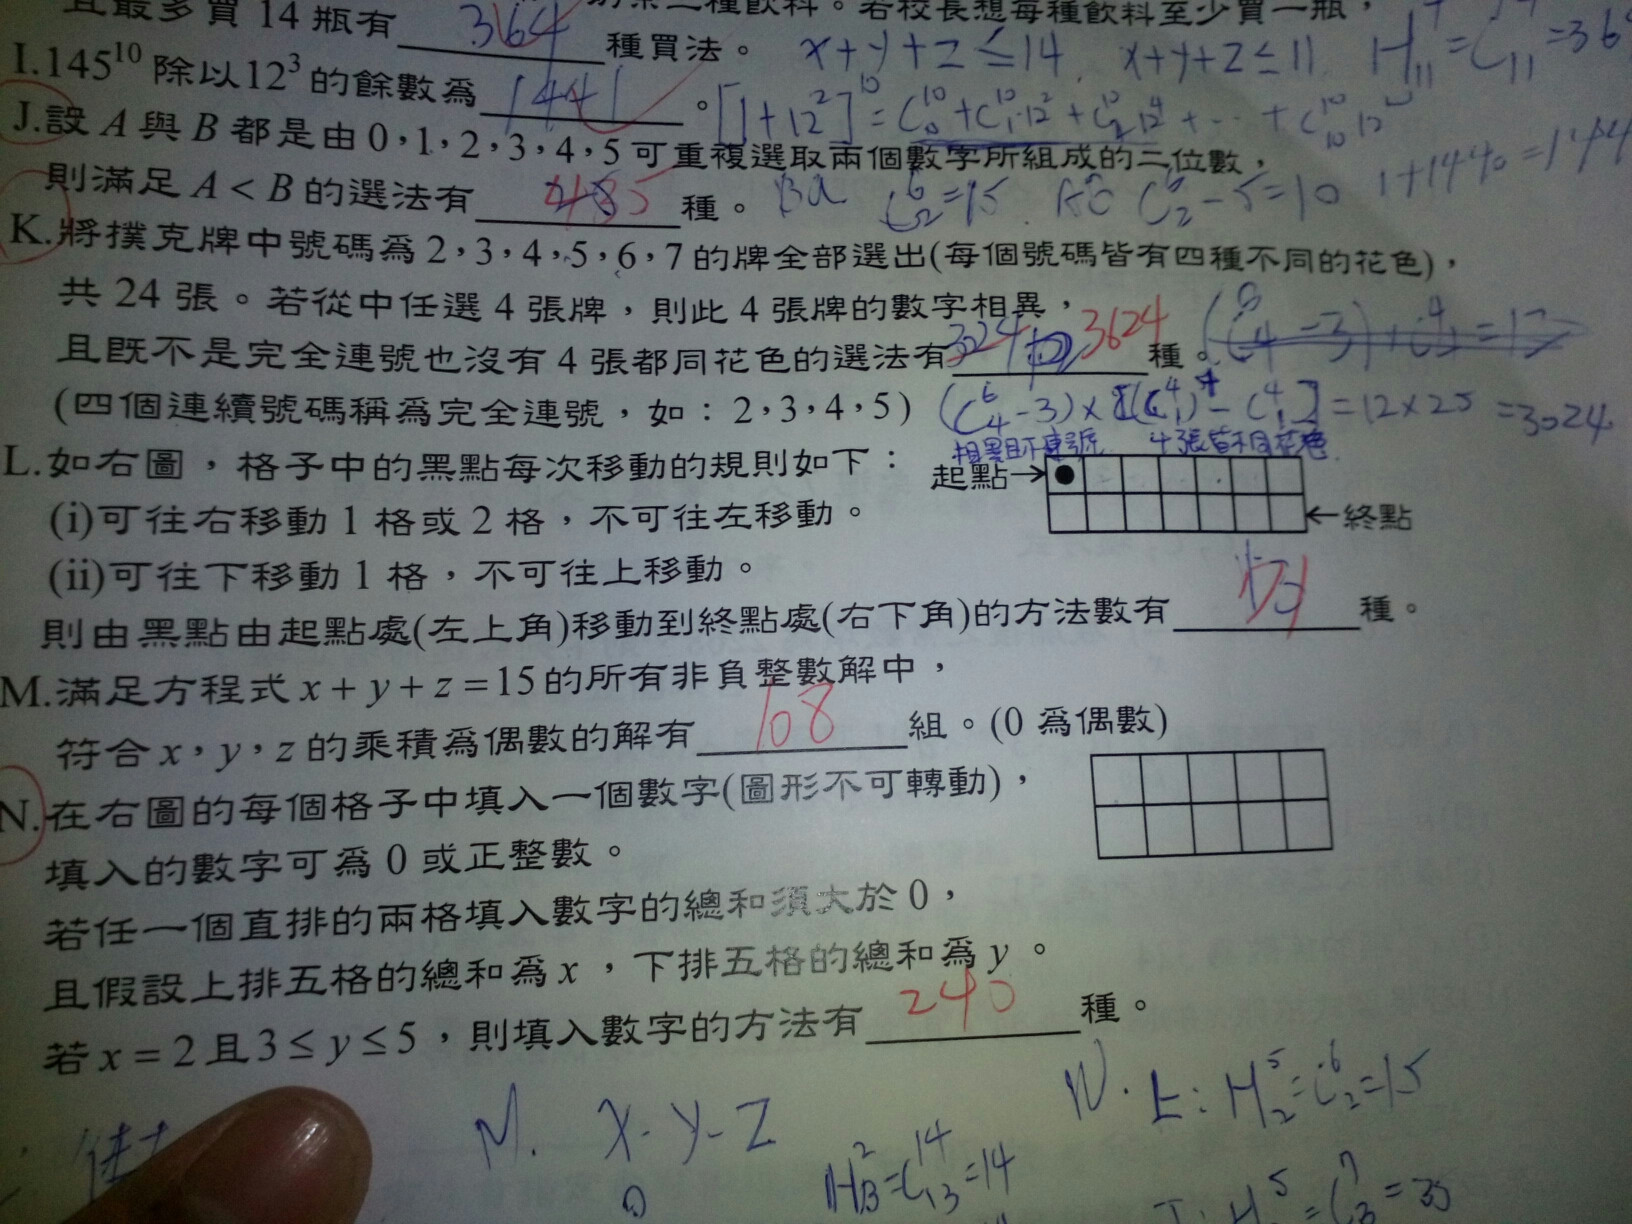 且最多買 14 瓶有 364 種買法。 x+y+z≤14, x+y+z≤11
I.145^10 除以12^3的餘數為 1441 。 [1+12^2]^10
J.設 A 與 B 都是由 0,1,2,3,4,5 可重複選取兩個數字所組成的二位數, 1+1440=144
則滿足 A < B 的選法有 435 種。
K.將撲克牌中號碼為 2,3,4,5,6,7 的牌全部選出(每個號碼皆有四種不同的花色),
共 24 張。若從中任選 4 張牌,則此 4 張牌的數字相異,
且既不是完全連號也沒有 4 張都同花色的選法有 3624 種。
(四個連續號碼稱為完全連號,如:2,3,4,5) =3024
L.如右圖,格子中的黑點每次移動的規則如下:
起點→
(i)可往右移動 1 格或 2 格,不可往左移動。
←終點
(ii)可往下移動 1 格,不可往上移動。
則由黑點由起點處(左上角)移動到終點處(右下角)的方法數有 種。
M.滿足方程式 x + y + z = 15 的所有非負整數解中,
符合 x,y,z 的乘積為偶數的解有 108 組。(0 為偶數)
N.在右圖的每個格子中填入一個數字(圖形不可轉動),
填入的數字可為 0 或正整數。
若任一個直排的兩格填入數字的總和須大於 0,
且假設上排五格的總和為 x ,下排五格的總和為 y 。
若 x = 2 且 3 ≤ y ≤ 5 ,則填入數字的方法有 240 種。
M. X-Y-Z
0
N. 上: H^5_2=C^6_2=15
C^14_13=14